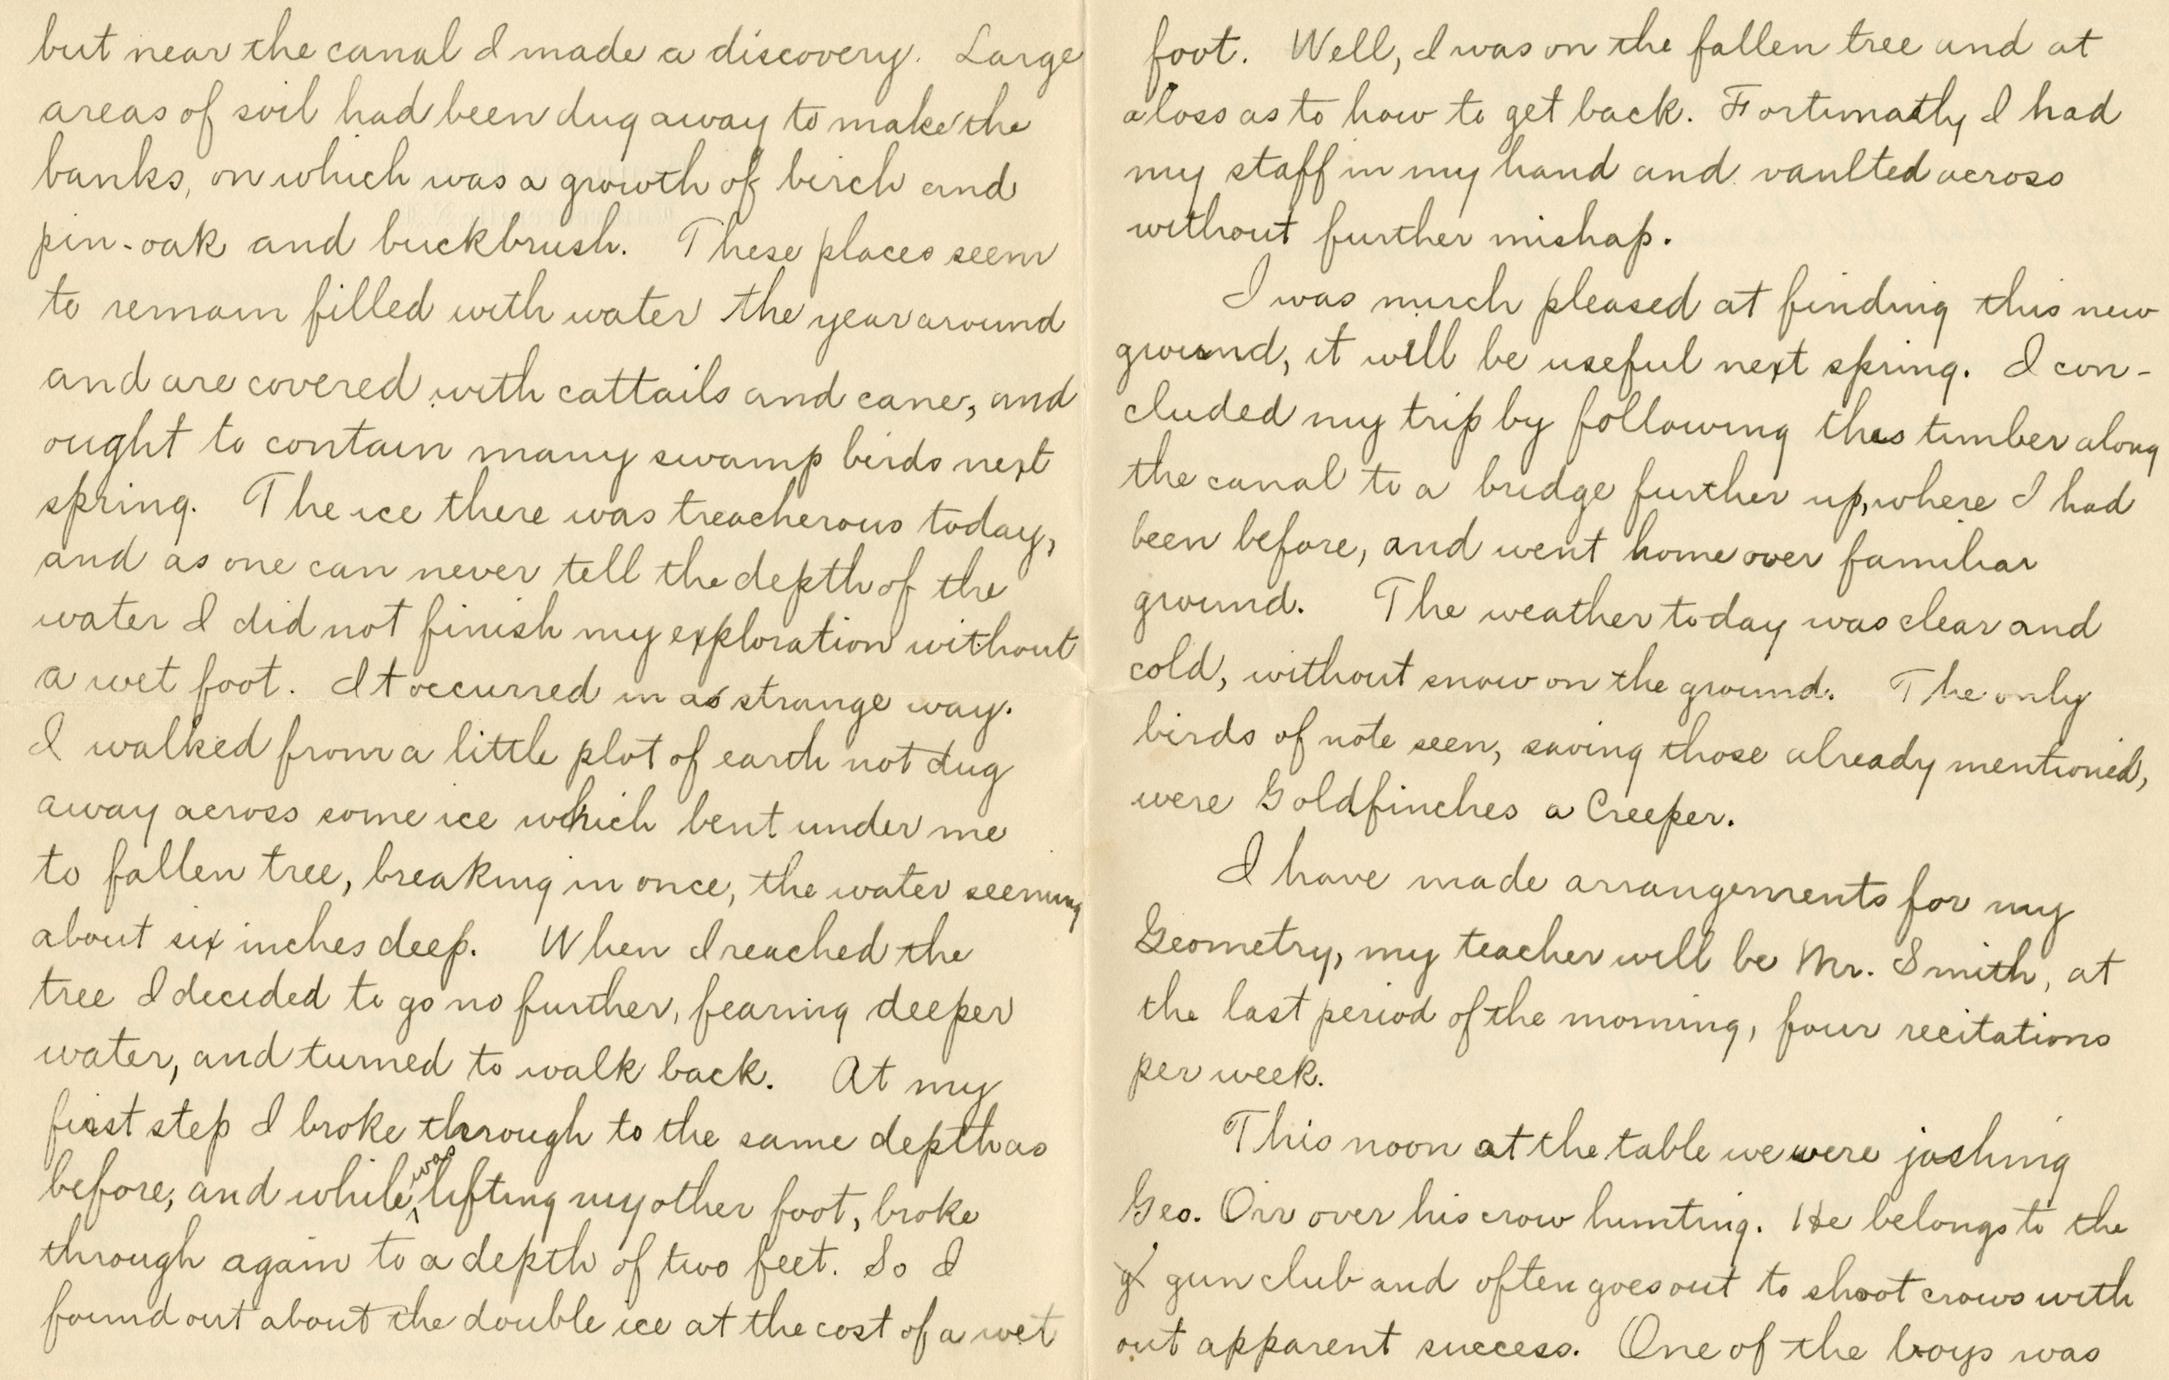 but near the canal I made a discovery. Large
areas of soil had been dug away to make the
banks, on which was a growth of birch and
pin-oak and buckbrush. These places seem
to remain filled with water the year around
and are covered with cattails and cane, and
ought to contain many swamp birds next
spring. The ice there was treacherous today,
and as one can never tell the depth of the
water I did not finish my exploration without
a wet foot. It occurred in as strange way.
I walked from a little plot of earth not dug
away across some ice which bent under me
to fallen tree, breaking in once, the water seeming
about six inches deep. When I reached the
tree I decided to go no further, fearing deeper
water, and turned to walk back. At my
first step I broke through to the same depth as
before, and while was lifting my other foot, broke
through again to a depth of two feet. So I
found out about the double ice at the cost of a wet
foot. Well, I was on the fallen tree and at
a loss as to how to get back. Fortunatly I had
my staff in my hand and vaulted across
without further mishap.
I was much pleased at finding this new
ground, it will be useful next spring. I con-
cluded my trip by following this timber along
the canal to a bridge further up, where I had
been before, and went home over familiar
ground. The weather today was clear and
cold, without snow on the ground. The only
birds of note seen, saving those already mentioned,
were Goldfinches a Creeper.
I have made arrangements for my
Geometry, my teacher will be Mr. Smith, at
the last period of the morning, four recitations
per week.
This noon at the table we were joshing
Geo. Orr over his crow hunting. He belongs to the
gun club and often goes out to shoot crows with
out apparent success. One of the boys was